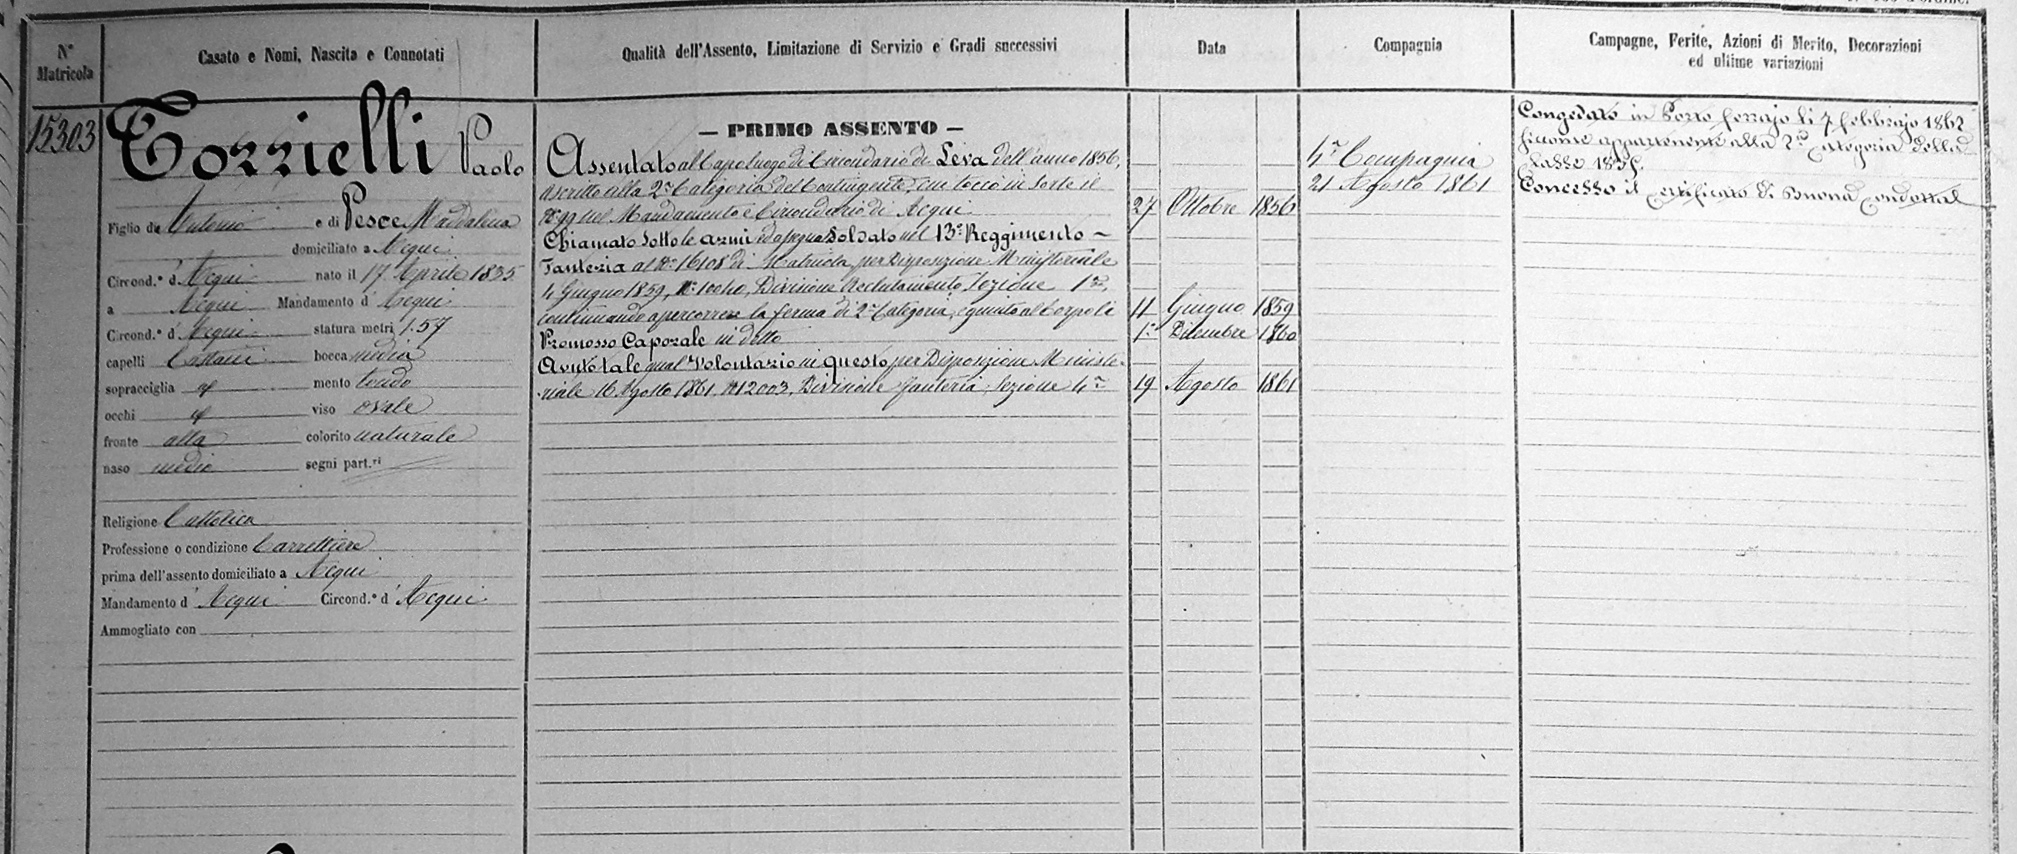 N° Matricola
Casato e Nomi, Nascita e Connotati
Qualità dell'Assento, Limitazione di Servizio e Gradi successivi
Data
Compagnia
Campagne, Ferite, Azioni di Merito, Decorazioni
ed ultime variazioni
15303
Torrielli Paolo
Figlio di Antonio e di Pesce Maddalena
domiciliato a Acqui
Circond.° d' Acqui nato il 17 Aprile 1835
a Acqui Mandamento d' Acqui
Circond.° d' Acqui statura metri 1.57
capelli Castani bocca media
sopracciglia mento tondo
occhi viso ovale
fronte alta colorito naturale
naso medio segni part.ri
Religione Cattolica
Professione o condizione Carrettiere
prima dell'assento domiciliato a Acqui
Mandamento d' Acqui Circond.° d' Acqui
Ammogliato con
— PRIMO ASSENTO —
Assentato al Capoluogo di Circondario di Leva dell'anno 1856,
ascritto alla 2a Categoria del Contingente, cui toccò in sorte il
nel Mandamento e Circondario di Acqui 27 Ottobre 1856
Chiamato sotto le armi ed Soldato nel 13° Reggimento
Fanteria al N° 16108 di Matricola per Disposizione Ministeriale
4 Giugno 1859, Divisione Reclutamento Sezione 1a,
continuando a percorrere la ferma di 2a Categoria, e giunto al Corpo li 11 Giugno 1859
Promosso Caporale in detto 1° Dicembre 1860
Avuto tale qual Volontario in questo per Disposizione Ministe-
riale 16 Agosto 1861 N° 12003, Divisione Fanteria, Sezione 4a 19 Agosto 1861
4a Compagnia
21 Agosto 1861
Congedato in Porto ferrajo li 7 febbrajo 1862
siccome appartenente alla 2a Categoria della
Classe 1835.
Concesso il Certificato di Buona Condotta